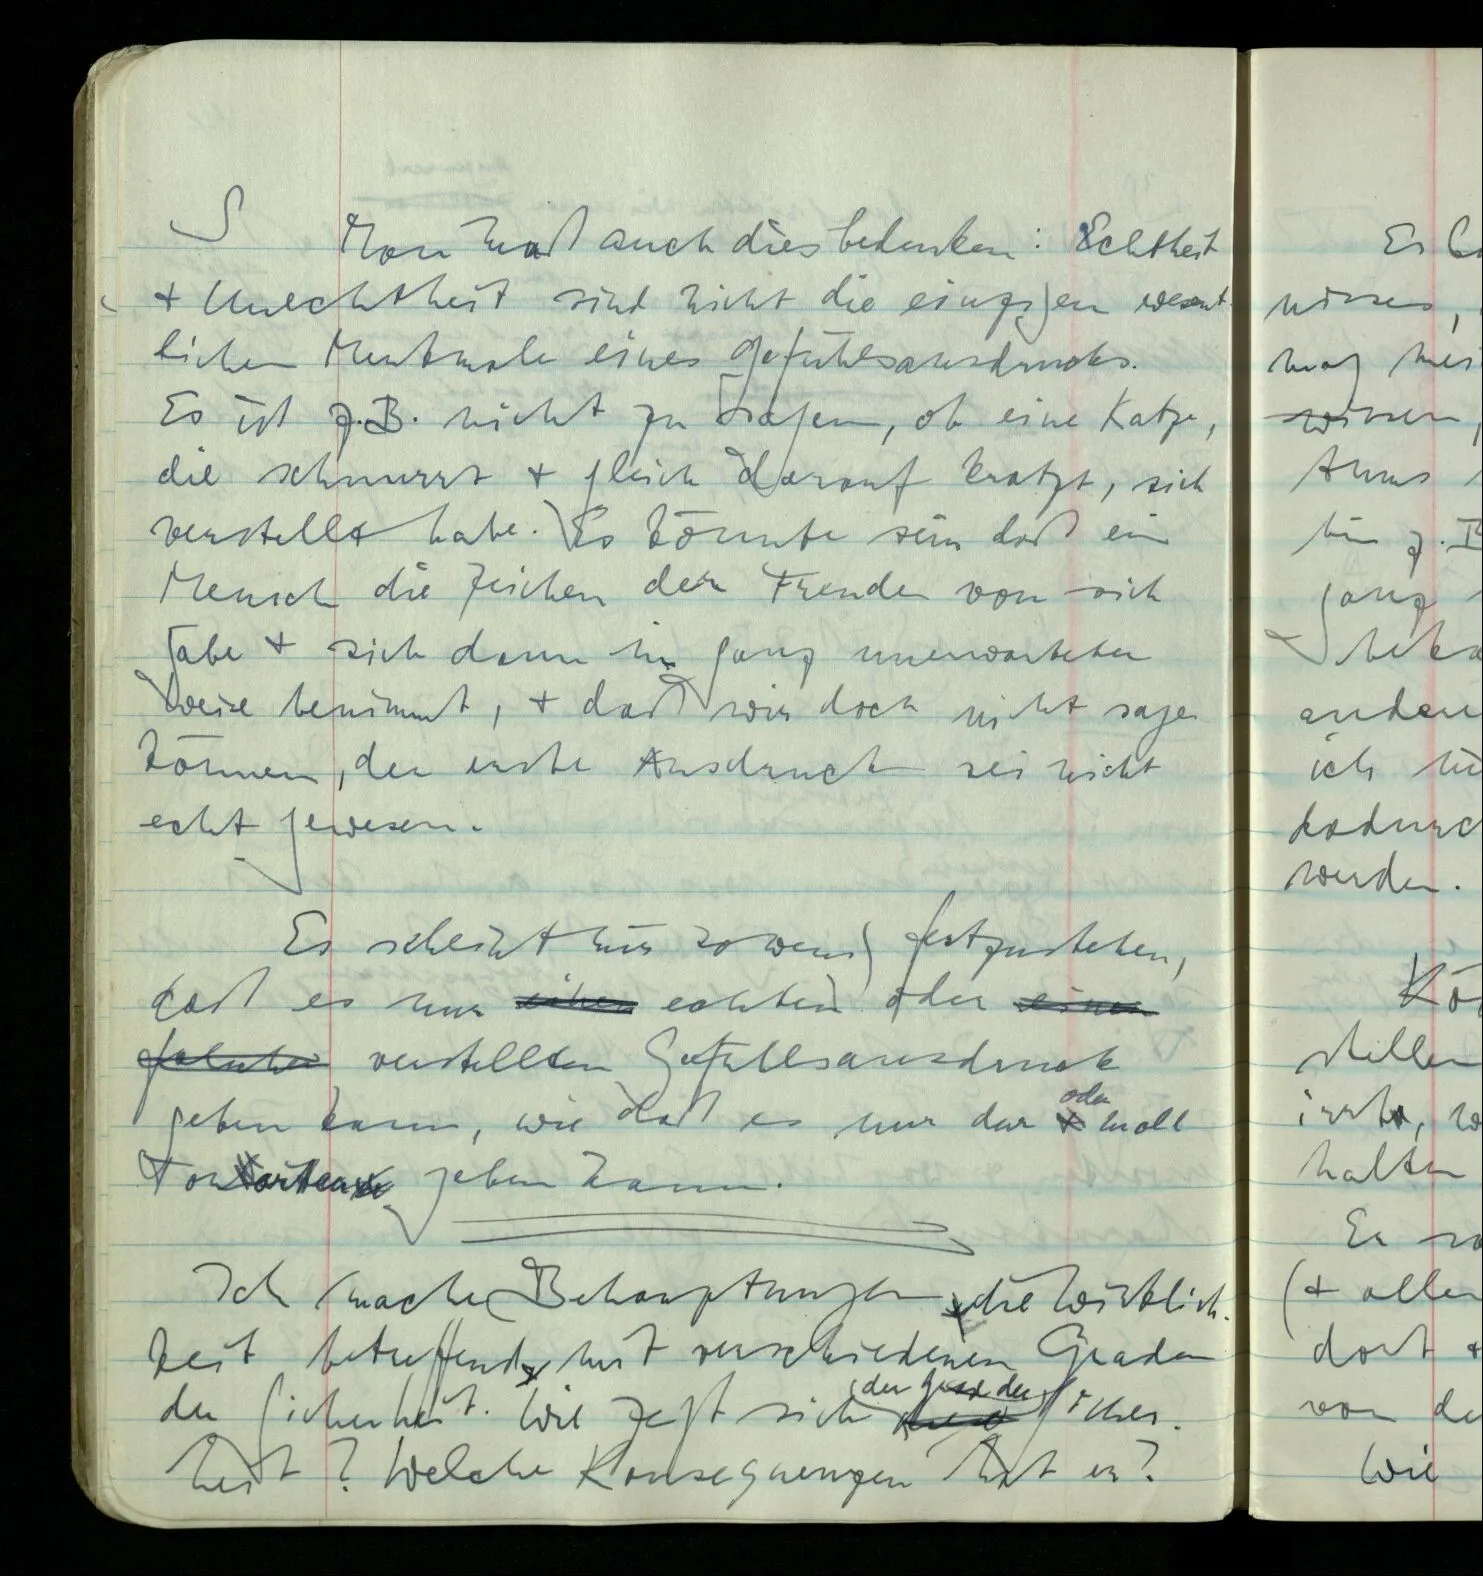 S Man muß auch dies bedenken: Echtheit
+ Unechtheit sind nicht die einzigen wesent
lichen Merkmale eines Gefühlsausdrucks.
Es ist z.B. nicht zu sagen, ob eine Katze,
die schnurrt + gleich darauf kratzt, sich
verstellt habe. Es könnte sein daß ein
Mensch die Zeichen der Freude von sich
gäbe + sich dann in ganz unerwarteter
Weise benimmt, + daß wir doch nicht sagen
können, der erste Ausdruck sei nicht
echt gewesen.
Es scheint mir so wenig festzustehen,
daß es nur einen echten oder einen
falschen verstellten Gefühlsausdruck
geben kann, wie daß es nur dur oder moll
Tonarten geben kann.
Ich mache Behauptungen, die Wirklich-
keit betreffend, mit verschiedenen Graden
der Sicherheit. Wie zeigt sich der Grad der Sicher-
heit? Welche Konsequenzen hat er?
Es
wissen,
mag
wissen,
bin z.B
ganz
ich
dadurc
werden.
Kö
stellen
irrt,
halten
Er
(+ allen
dort +
von de
Wie